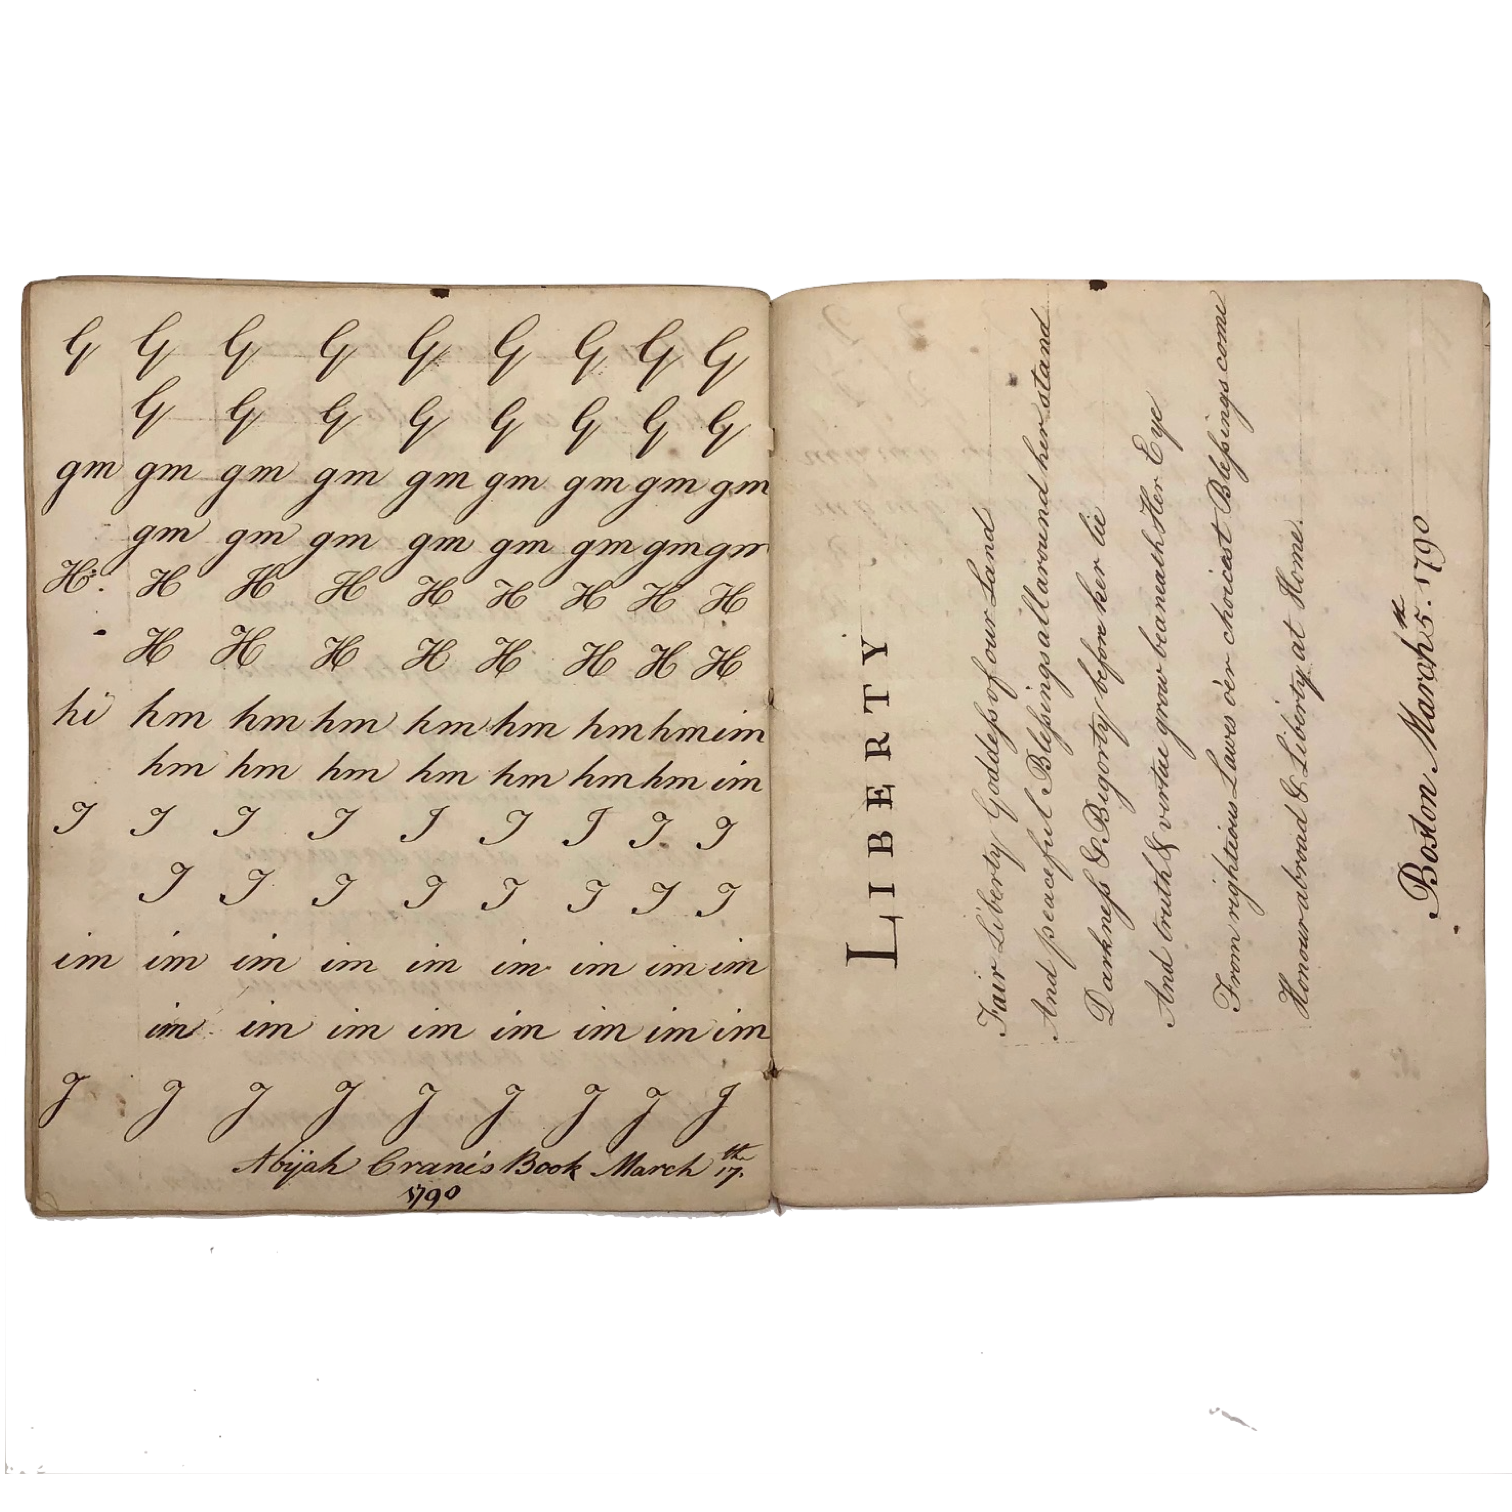 G G G G G G G G G
G G G G G G G G
gm gm gm gm gm gm gm gm gm
gm gm gm gm gm gm gm gm
H. H H H H H H H H
H H H H H H H H
hi hm hm hm hm hm hm hm im
hm hm hm hm hm hm hm im
I I I I I I I I I
I I I I I I I I
im im im im im im im im im
im im im im im im im im
J J J J J J J J J
Abijah Crane's Book March 17th.
1790
LIBERTY
Fair Liberty Goddess of our Land
And peaceful Blessings all around her stand
Darkness & Bigorty before her lie
And truth & virtue grow beaneath Her Eye
From rightious Lawes o'er choicest Blessings come
Honour abroad & Liberty at Home.
Boston March 5th. 1790